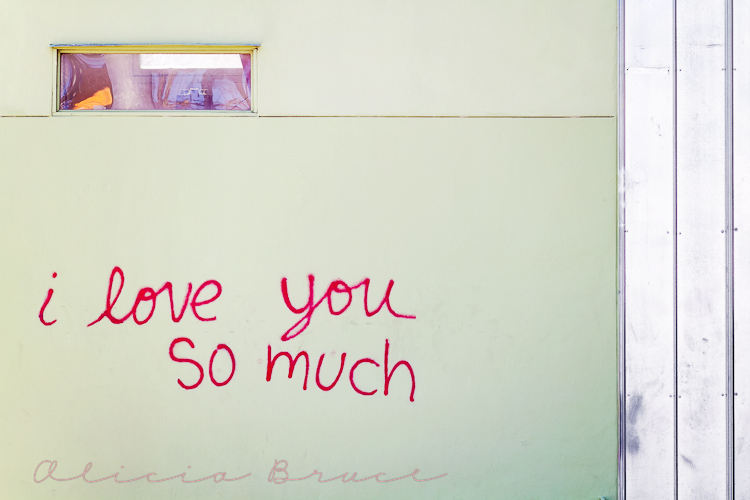 i love you
so much
Alicia Bruce